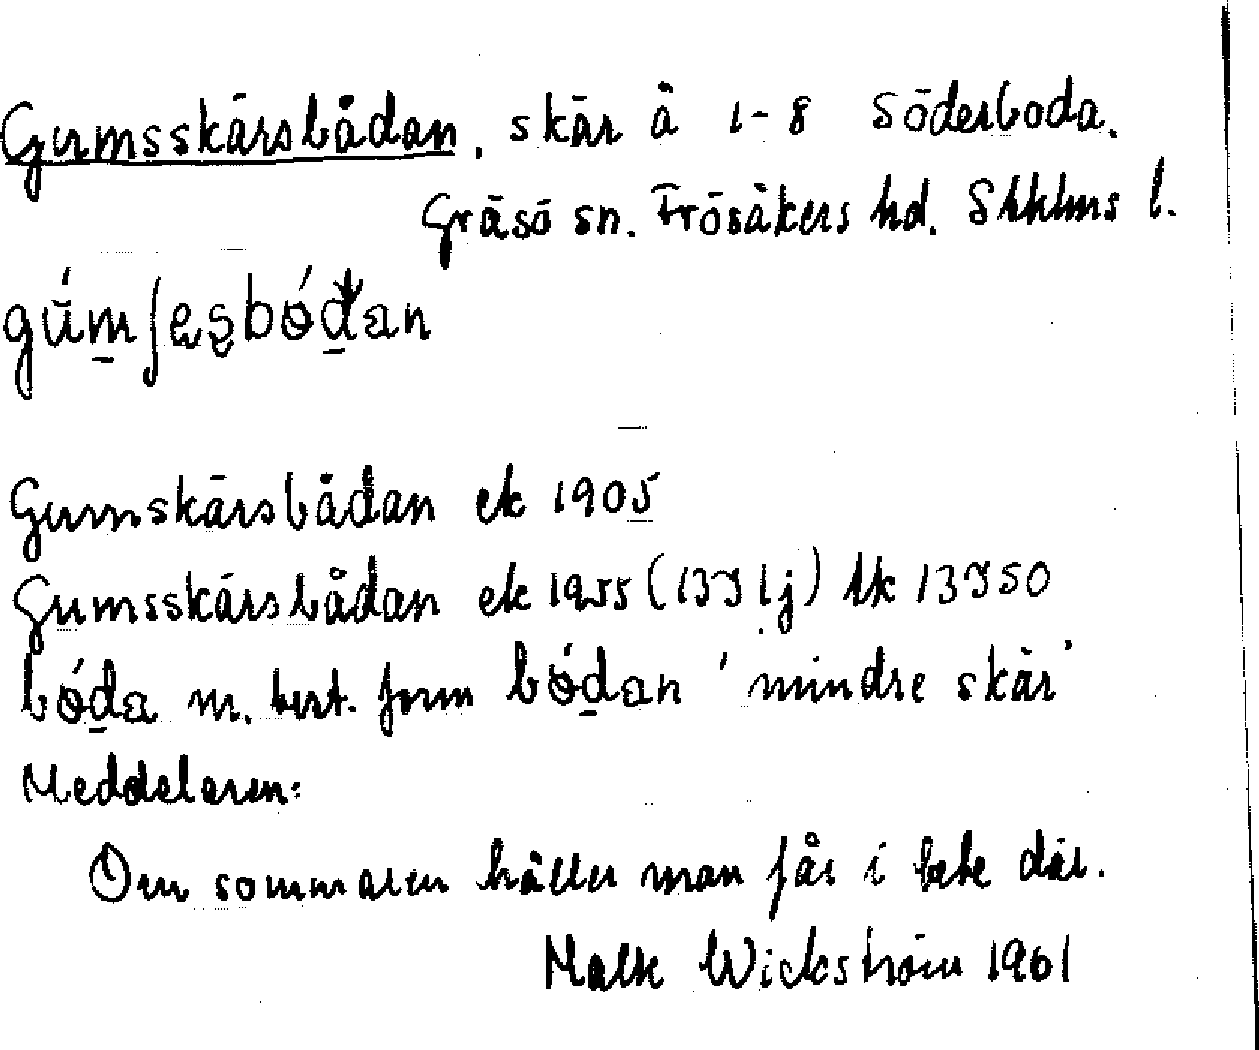 Gumsskärsbådan, skär å 1-8 Söderboda.
Gräsö sn. Frösåkers hd. Sthlms l.
Gumskärsbådan ek 1905
Gumsskärsbådan ek 1955 (13J 1j) lk 13J50
bóda m. best. form bódan 'mindre skär'
Meddelaren:
Om sommaren håller man får i bete där.
Wickström 1961